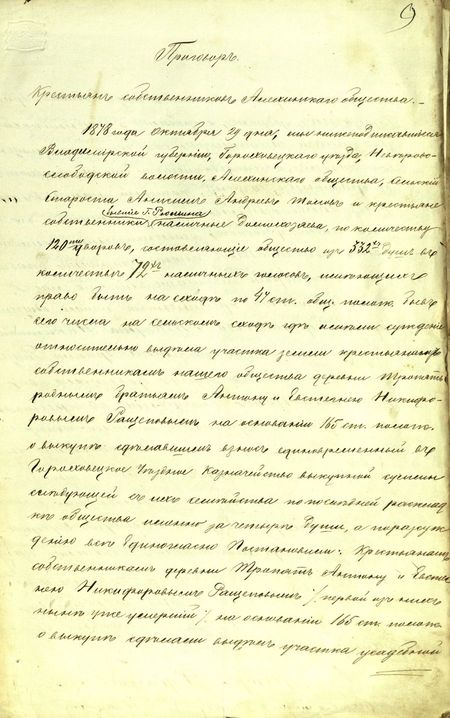 Приговоръ.
Крестьянъ собственниковъ Алешинскаго общества. –
1878 года Октября 29 дня, мы нижеподписавшіеся
Владимірской губерніи, Гороховецкаго уѣзда,
слободской волости, Алешинскаго общества, Сельскій
Староста Андреевъ и крестьяне
бывшіе Г.
собственники наличные домохозяева, по количеству
120ти дворовъ, составляющіе общество изъ 332хъ душъ въ
количествѣ 72хъ наличныхъ голосовъ, имѣющихъ
право быть на сходѣ по 47 ст. общ. полож. бывъ
сего числа на сельскомъ сходѣ гдѣ имѣли сужденіе
относительно выдѣла участка земли крестьянамъ
собственникамъ нашего общества деревни
роднымъ братьямъ Антону и Евстегнею Никифо-
ровымъ Ращеповымъ на основаніи 165 ст. полож.
о выкупѣ сдѣлавшимъ взносъ единовременный въ
Гороховецкое Уѣздное Казначейство выкупной суммы
слѣдующей съ ихъ семейства по послѣдней расклад-
кѣ общества именно за четыре души, а по разсуж-
денію всѣ Единогласно Постановили: Крестьянамъ
собственникамъ деревни Антону и Евсте-
нею Никифоровымъ Ращеповымъ /: первой изъ нихъ
нынѣ уже умершій :/ на основаніи 165 ст. полож.
о выкупѣ сдѣлать выдѣлъ участка усадебной